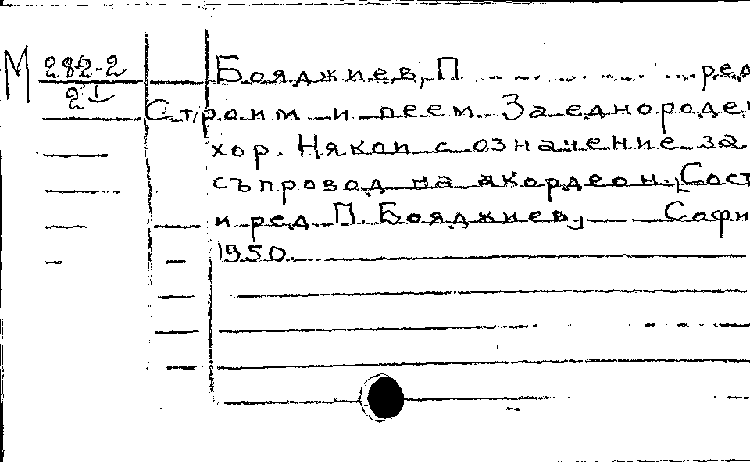 М 282-2 Бояджиев, П. ред
21
Строим и пеем. За еднороден
хор. Някои с означение за
съпровод на акордеон. Сост
и ред. П. Бояджиев, Софи
1950.